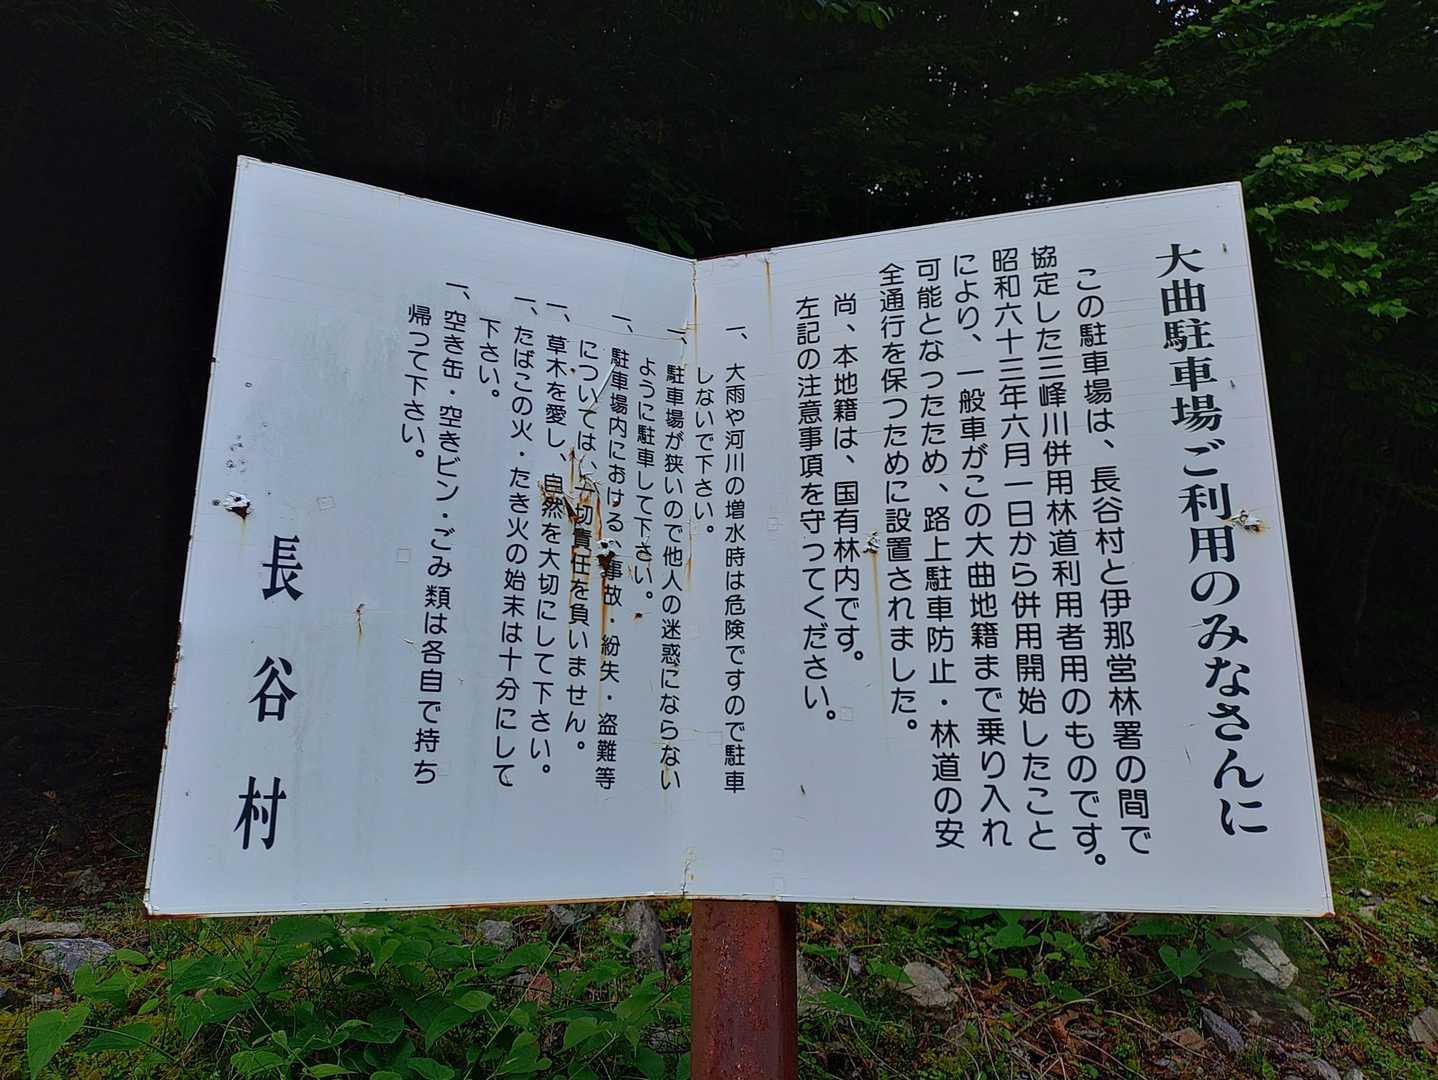 大曲駐車場ご利用のみなさんに
この駐車場は、長谷村と伊那営林署の間で
協定した三峰川併用林道利用者用のものです。
昭和六十三年六月一日から併用開始したこと
により、一般車がこの大曲地籍まで乗り入れ
可能となったため、路上駐車防止・林道の安
全通行を保つために設置されました。
尚、本地籍は、国有林内です。
左記の注意事項を守ってください。
一、大雨や河川の増水時は危険ですので駐車
しないで下さい。
一、駐車場が狭いので他人の迷惑にならない
ように駐車して下さい。
一、駐車場内における、事故・紛失・盗難等
については、一切責任を負いません。
一、草木を愛し、自然を大切にして下さい。
一、たばこの火・たき火の始末は十分にして
下さい。
一、空き缶・空きビン・ごみ類は各自で持ち
帰って下さい。
長谷村